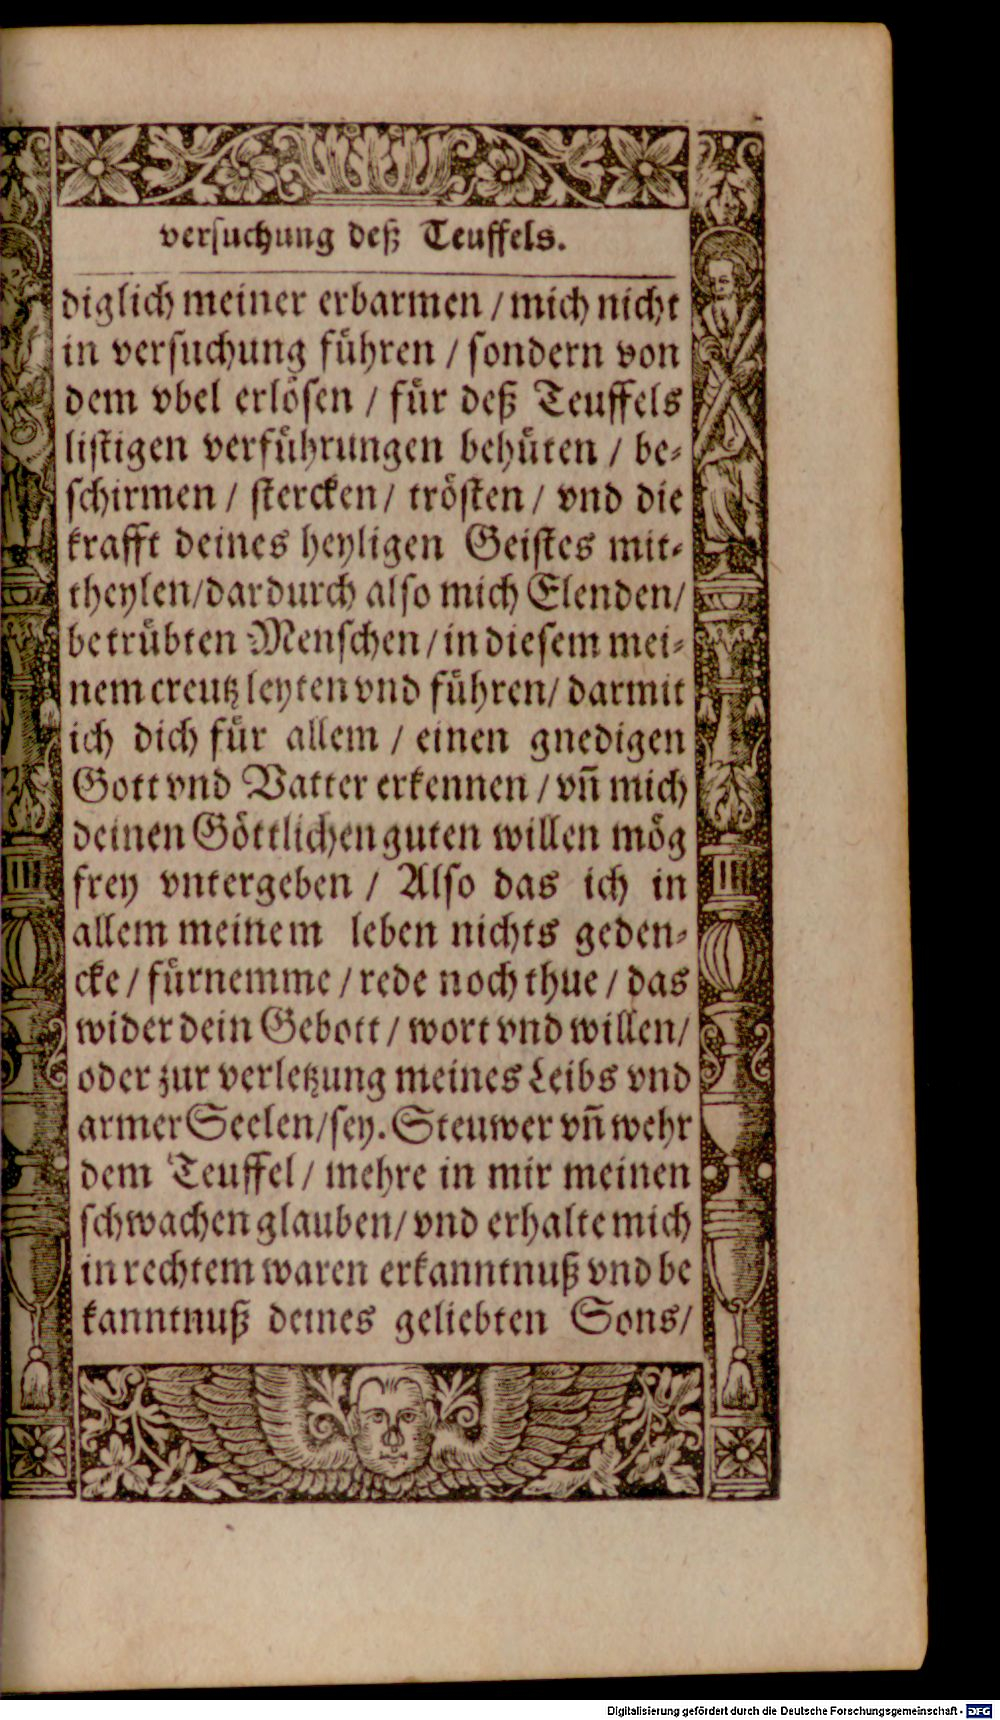 versuchung deß Teuffels.
diglich meiner erbarmen / mich nicht
in versuchung fuͤhren / sondern von
dem vbel erloͤsen / fuͤr deß Teuffels
listigen verfuͤhrungen behuͤten / be⸗
schirmen / stercken / troͤsten / vnd die
krafft deines heyligen Geistes mit⸗
theylen/dardurch also mich Elenden/
betruͤbten Menschen / in diesem mei⸗
nem creutz leyten vnd fuͤhren/ darmit
ich dich fuͤr allem / einen gnedigen
Gott vnd Vatter erkennen / vn̄ mich
deinen Goͤttlichen guten willen moͤg
frey vntergeben / Also das ich in
allem meinem leben nichts geden⸗
cke / fuͤrnemme / rede noch thue / das
wider dein Gebott / wort vnd willen/
oder zur verletzung meines Leibs vnd
armer Seelen/sey. Steuwer vn̄ wehr
dem Teuffel / mehre in mir meinen
schwachen glauben/ vnd erhalte mich
in rechtem waren erkanntnuß vnd be
kanntnuß deines geliebten Sons/
Digitalisierung gefördert durch die Deutsche Forschungsgemeinschaft - DFG